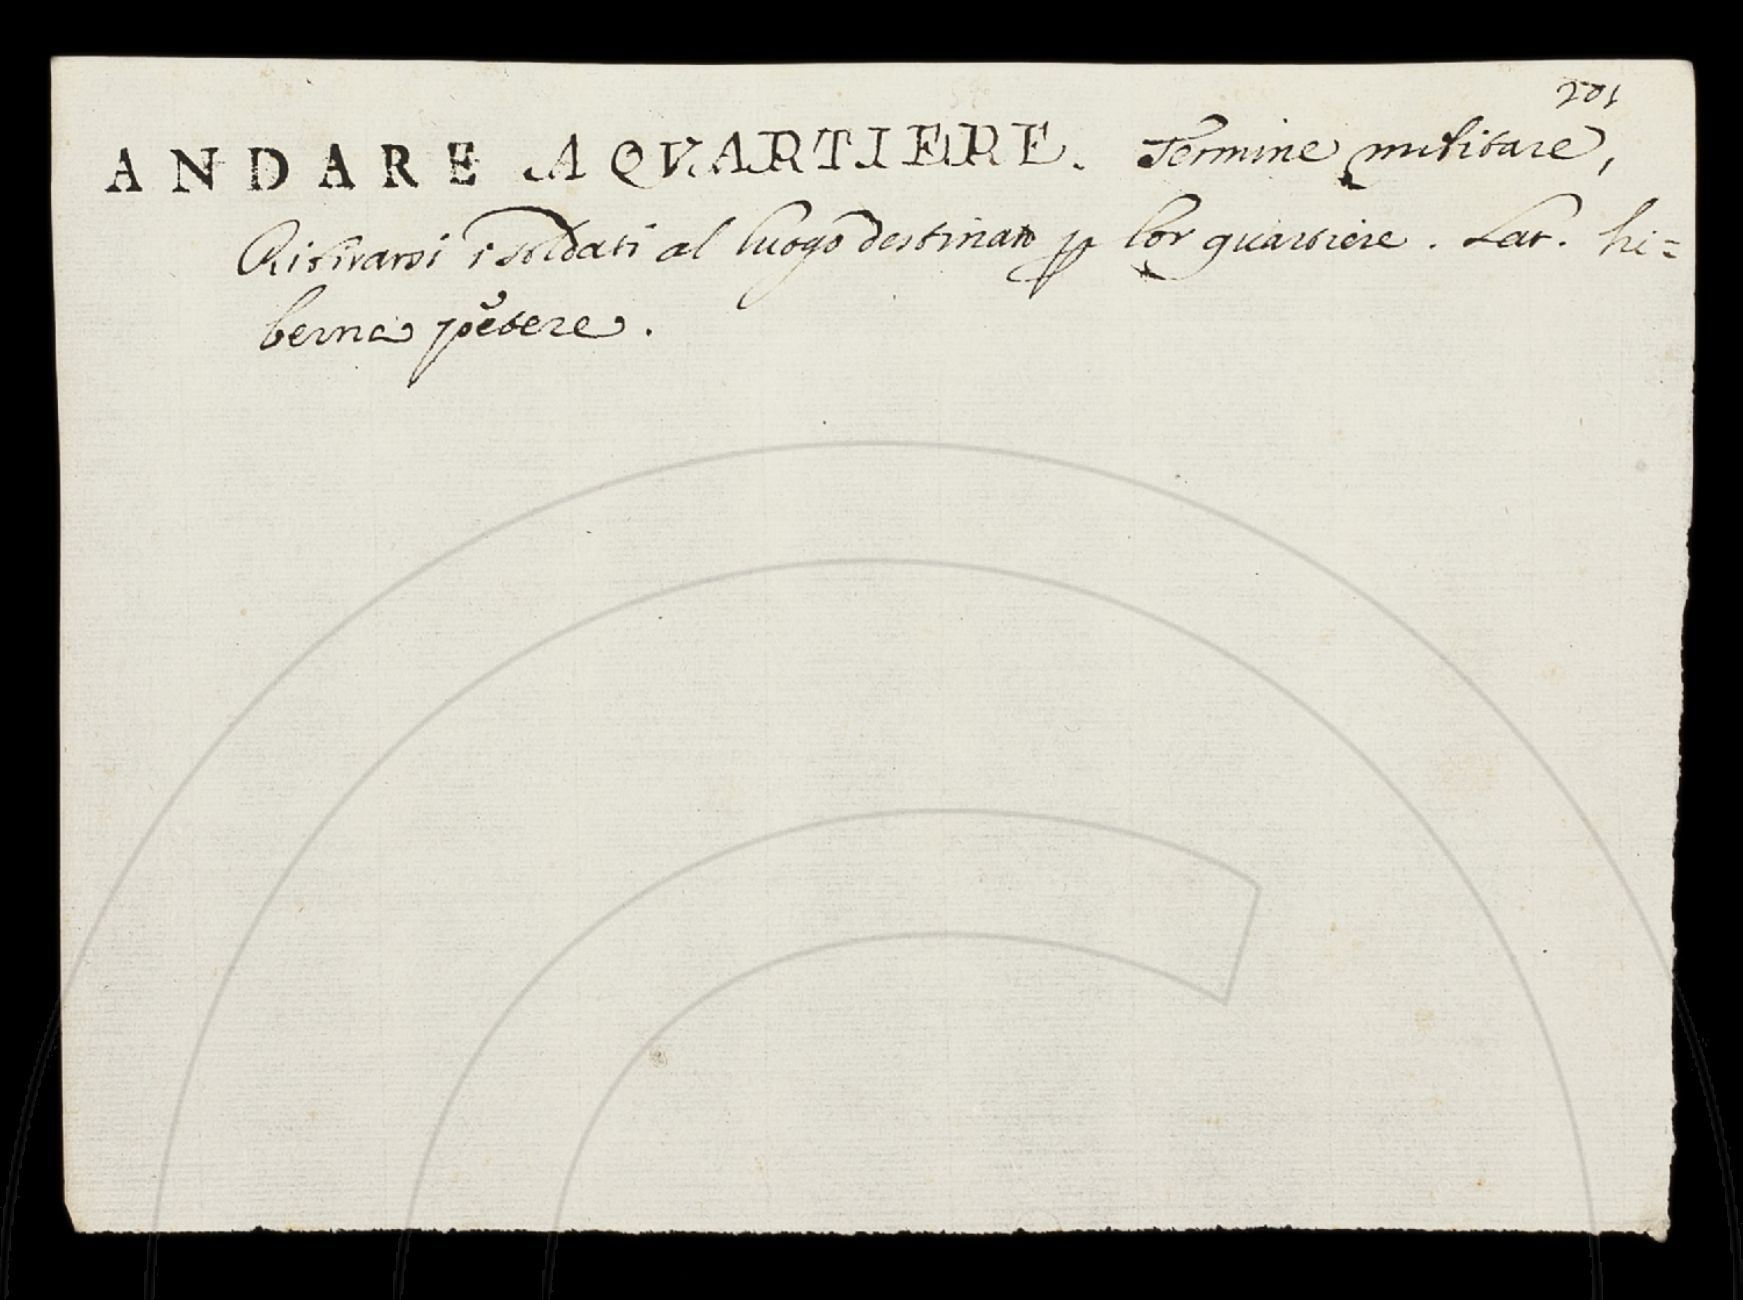 201
ANDARE A QVARTIERE. Termine militare,
Ritirarsi i soldati al luogo destinato p lor quartiere. Lat. hi=
berna petere.